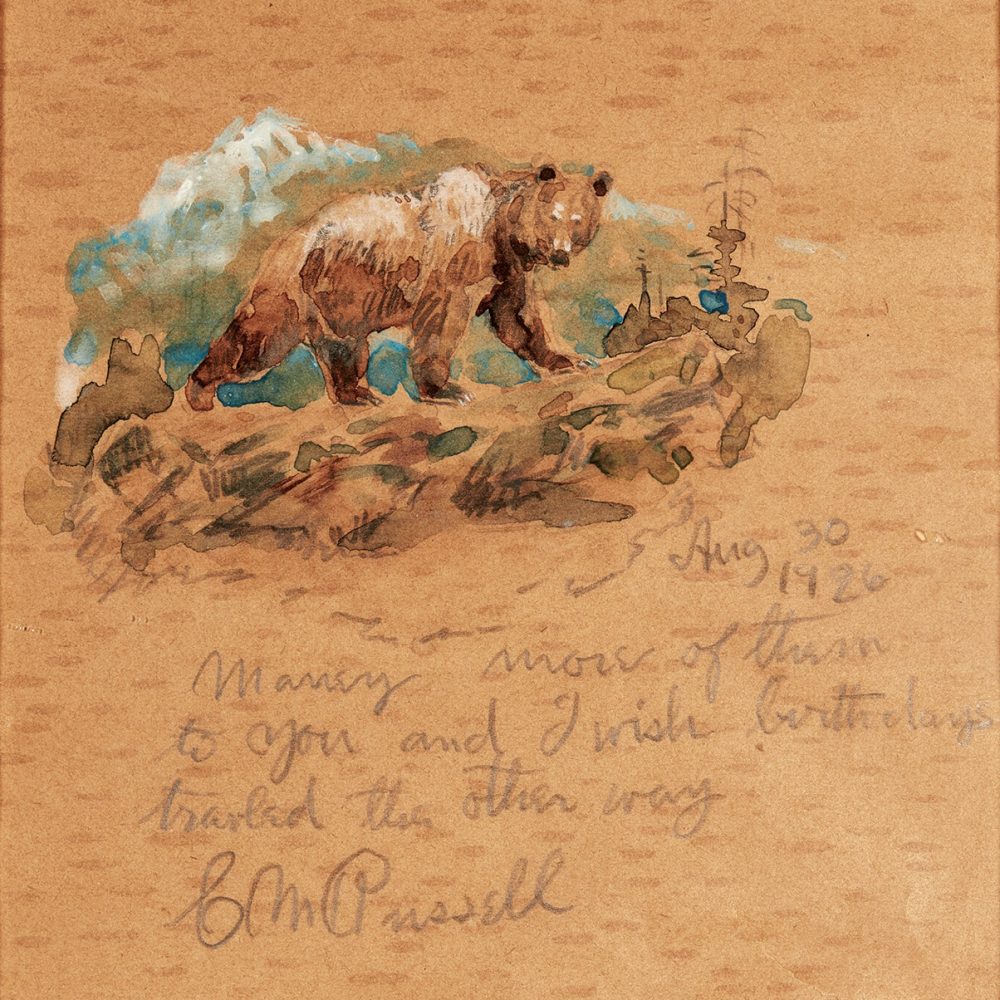 Aug 30
1926
Maney more of them
to you and I wish birthdays
travled the other way
CM Russell